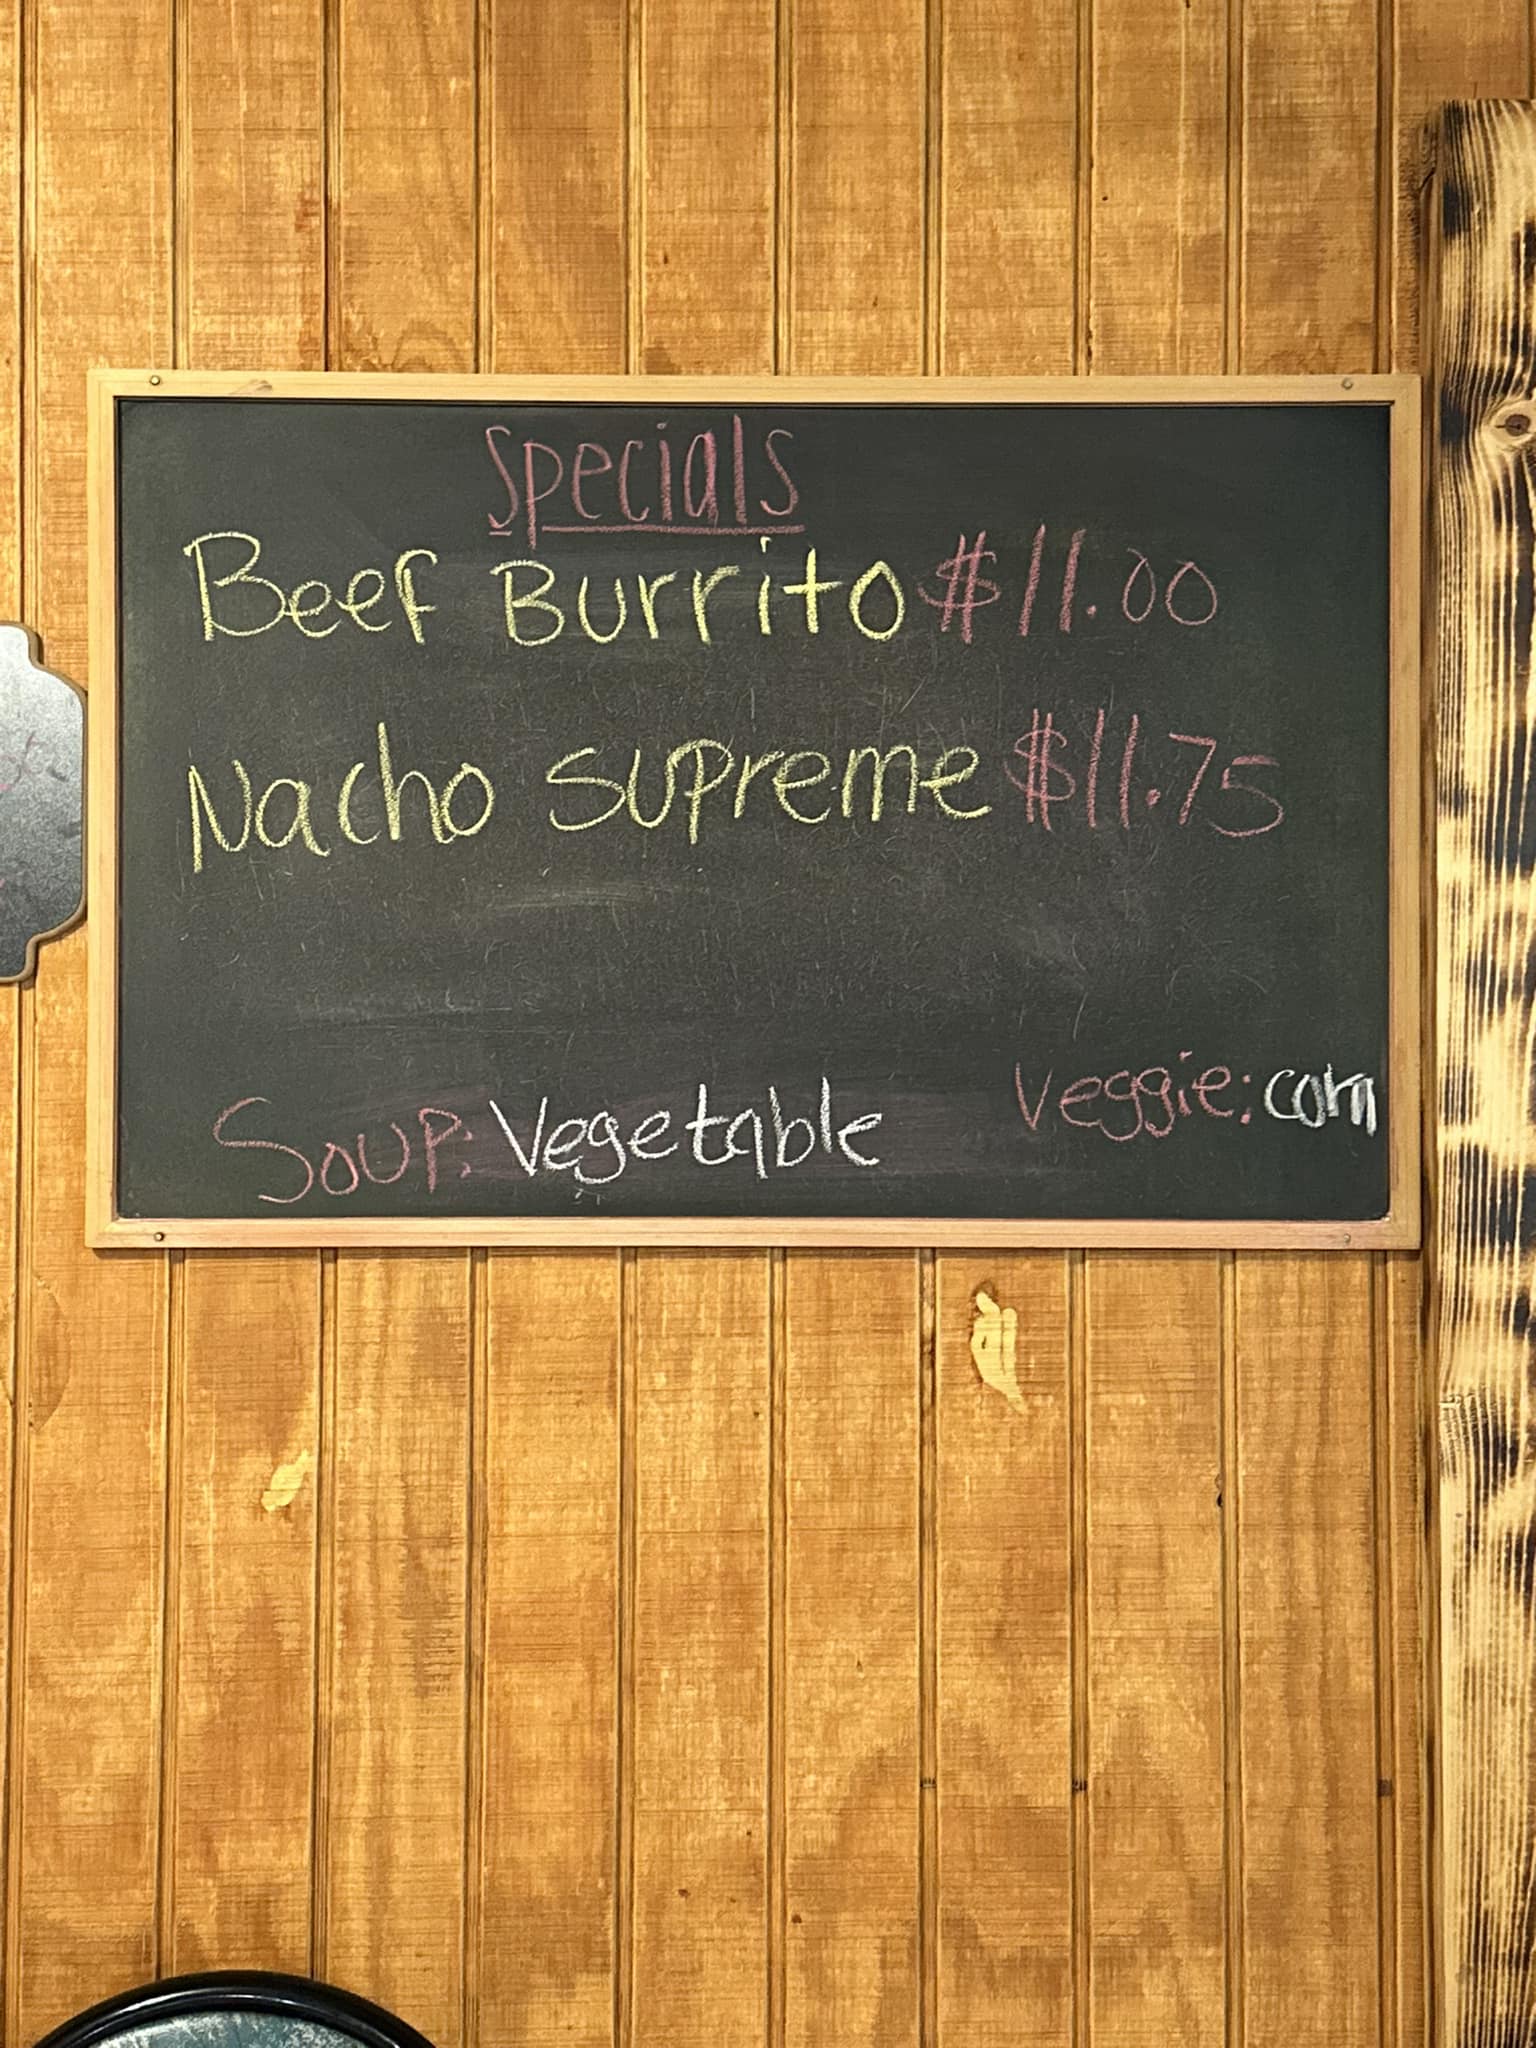 Specials
Beef Burrito $11.00
Nacho Supreme $11.75
Soup: Vegetable
Veggie: corn